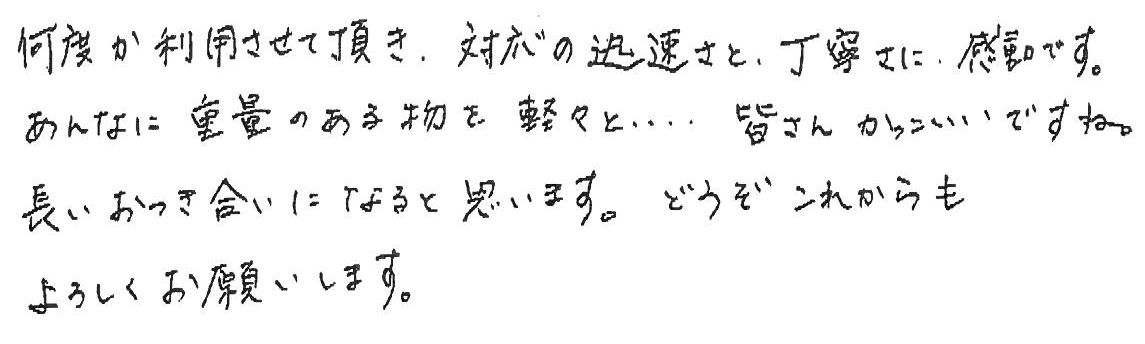 何度か利用させて頂き、対応の迅速さと、丁寧さに、感動です。
あんなに重量のある物を軽々と‥‥ 皆さんかっこいいですね。
長いおつき合いになると思います。どうぞこれからも
よろしくお願いします。